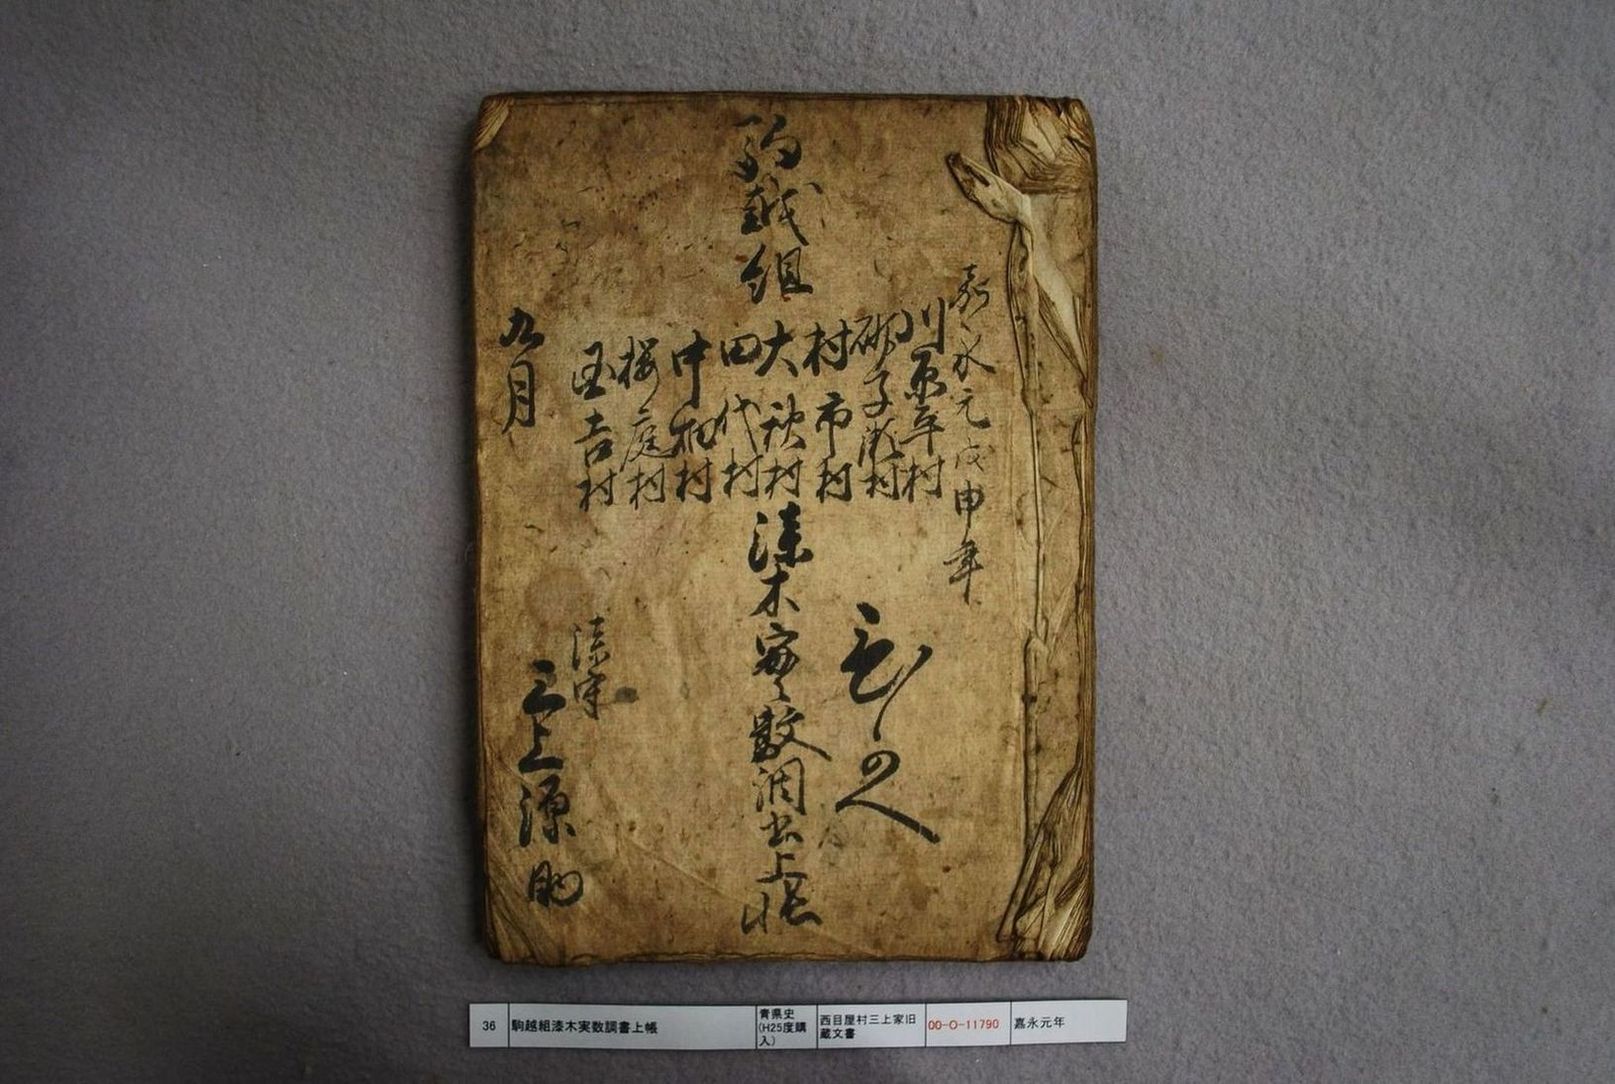 嘉永元戊申年
川原平村
砂子瀬村
村市村
大秋村
田代村
中畑村
桜庭村
国吉村
駒越組
漆木実数調書上帳
ひかへ
九月
漆守
三上源助
36 駒越組漆木実数調書上帳 青県史(H25度購入) 西目屋村三上家旧蔵文書 00-O-11790 嘉永元年